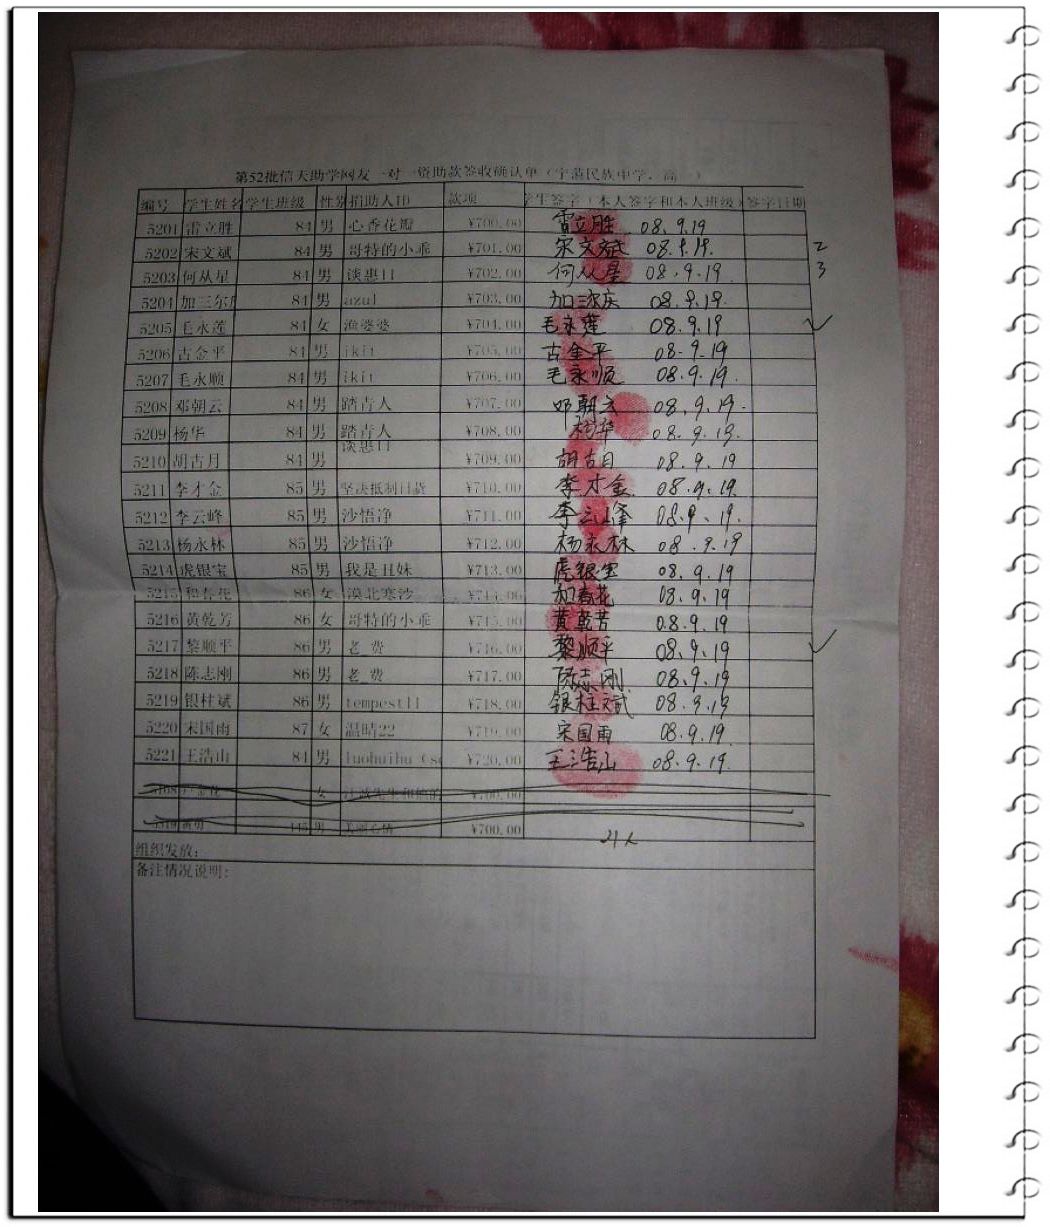 第52批信天助学网友一对一资助款签收确认单（宁蒗民族中学，高一）
编号 学生姓名 学生班级 性别 捐助人ID 款项 学生签字（本人签字和本人班级） 签字日期
5201 雷立胜 84 男 心香花瓣 ¥700.00 雷立胜 08.9.19
5202 宋文斌 84 男 哥特的小乖 ¥701.00 宋文斌 08.9.19. 2
5203 何从星 84 男 谈惠口 ¥702.00 何从星 08.9.19 3
5204 加三尔 84 男 azul ¥703.00 08.9.19.
5205 毛永莲 84 女 渔婆婆 ¥704.00 毛永莲 08.9.19 ✓
5206 古金平 84 男 ikit ¥705.00 古金平 08.9.19
5207 毛永顺 84 男 ikit ¥706.00 毛永顺 08.9.19.
5208 邓朝云 84 男 踏青人 ¥707.00 邓朝云 08.9.19.
5209 杨华 84 男 踏青人 ¥708.00 杨华 08.9.19.
5210 胡古月 84 男 谈惠口 ¥709.00 胡古月 08.9.19
5211 李才金 85 男 坚决抵制日货 ¥710.00 李才金 08.9.19.
5212 李云峰 85 男 沙悟净 ¥711.00 李云峰 08.9.19.
5213 杨永林 85 男 沙悟净 ¥712.00 杨永林 08.9.19
5214 虎银宝 85 男 我是丑妹 ¥713.00 虎银宝 08.9.19
5215 和春花 86 女 漠北寒沙 ¥714.00 和春花 08.9.19
5216 黄乾芳 86 女 哥特的小乖 ¥715.00 黄乾芳 08.9.19
5217 黎顺平 86 男 老 费 ¥716.00 黎顺平 08.9.19 ✓
5218 陈志刚 86 男 老 费 ¥717.00 陈志刚 08.9.19
5219 银杜斌 86 男 tempestll ¥718.00 08.9.19
5220 宋国雨 87 女 温晴22 ¥719.00 宋国雨 08.9.19.
5221 王浩山 84 男 luohuihu ¥720.00 王浩山 08.9.19.
女 ¥700.00
男 ¥700.00
21人
组织发放：
备注情况说明：